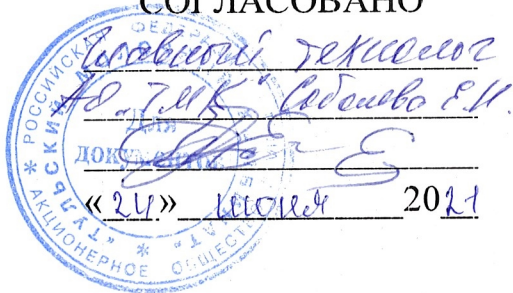 СОГЛАСОВАНО
Главный технолог
АО "ТМК" Соболева Е.Н.
«24» июня 2021
РОССИЙСКАЯ ФЕДЕРА
* АКЦИОНЕРНОЕ ОБЩЕСТВО
* "ТУЛЬСКИЙ
АТ" *
Для
документов